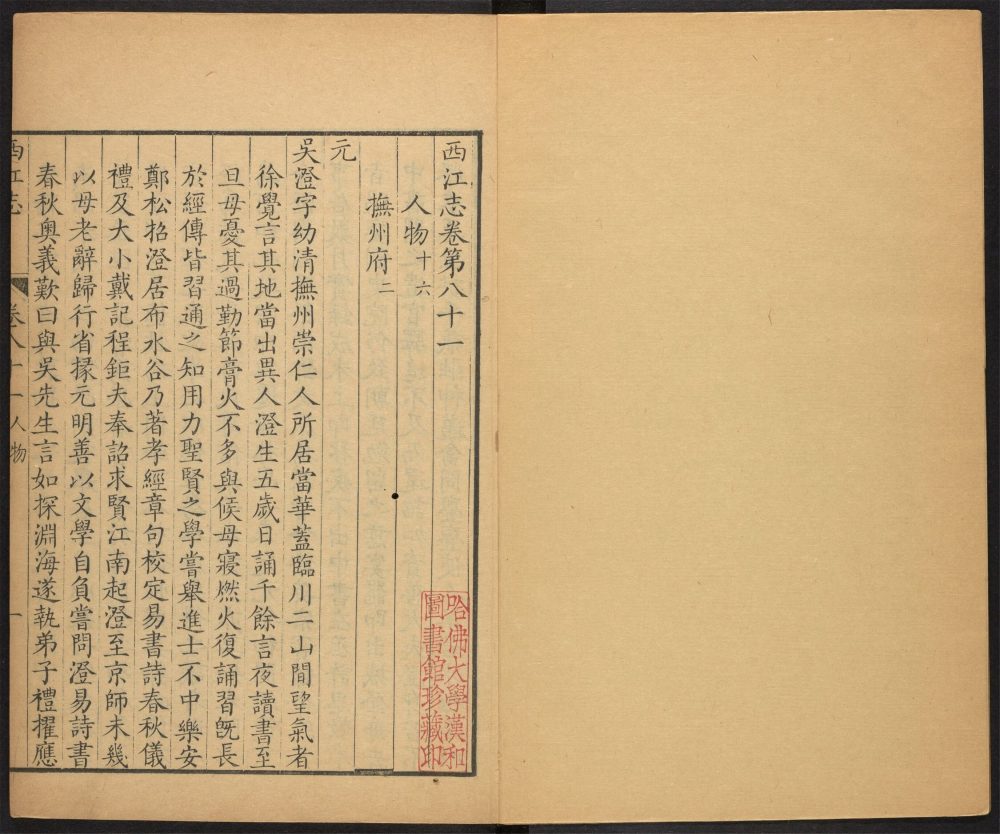 西江志卷第八十一
人物十六
撫州府二
元
吳澄字幼清撫州崇仁人所居當華蓋臨川二山間望氣者
徐覺言其地當出異人澄生五歲日誦千餘言夜讀書至
旦母憂其過勤節膏火不多與候母寢燃火復誦習旣長
於經傳皆習通之知用力聖賢之學嘗舉進士不中樂安
鄭松招澄居布水谷乃著孝經章句校定易書詩春秋儀
禮及大小戴記程鉅夫奉詔求賢江南起澄至京師未幾
以母老辭歸行省掾元明善以文學自負嘗問澄易詩書
春秋奧義歎曰與吳先生言如探淵海遂執弟子禮擢應
西江志 卷八十一人物 一
哈佛大學漢和
圖書館珍藏印